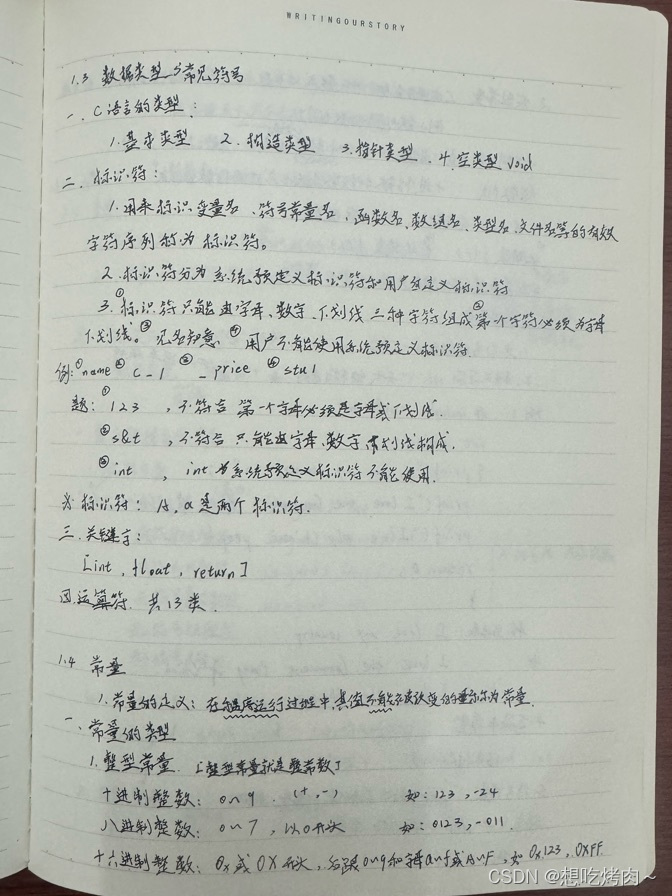 WRITINGOURSTORY
1.3 数据类型与常见符号
一、C语言的类型:
1.基本类型 2.构造类型 3.指针类型 4.空类型 void
二、标识符:
1.用来标识变量名、符号常量名、函数名、数组名、类型名、文件名等的有效
字符序列称为标识符。
2.标识符分为系统预定义标识符和用户自定义标识符
3.①标识符只能由字母、数字、下划线三种字符组成②第一个字符必须为字母
下划线。③见名知意、④用户不能使用系统预定义标识符.
例:①name ②C_1 ③_price ④stu1
题:①123 ,不符合 第一个字母必须是字母或下划线.
②s&t ,不符合 只能由字母、数字、下划线构成.
③int , int为系统预定义标识符不能使用.
标识符: A, a是两个标识符.
三.关键字:
[int, float, return]
四.运算符 共13类.
1.4 常量
1.常量的定义:在程序运行过程中,其值不能被改变的量称为常量.
一、常量的类型
1.整型常量. [整型常量就是整常数]
十进制整数: 0~9 (+,-) 如:123,-24
八进制整数: 0~7,以0开头 如:0123,-011.
十六进制整数: 0x或0X开头,后跟0~9和字母a~f或A~F,如0x123,0XFF
CSDN @想吃烤肉~